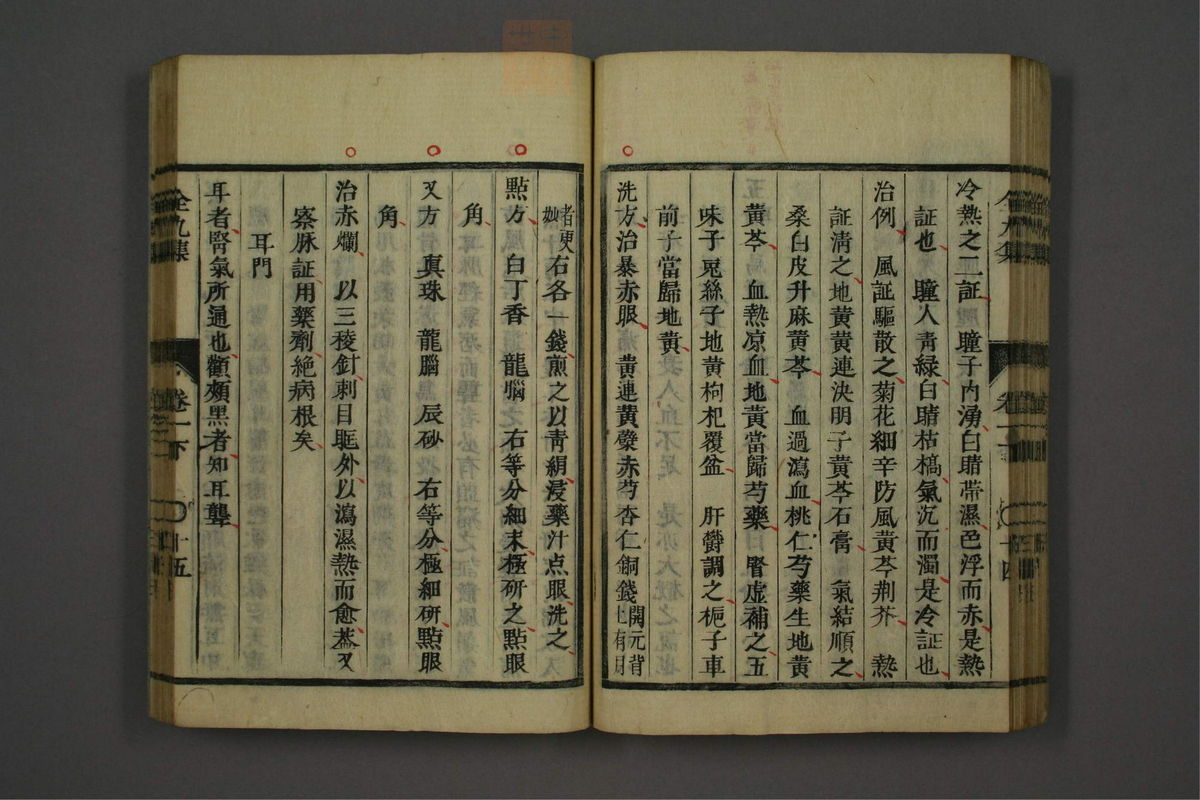 冷熱之二証瞳子内湧白睛帯濕色浮而赤是熱
証也瞳人青緑白睛枯槁氣沉而濁是冷証也
治例 風証驅散之菊花細辛防風黄芩荆芥 熱
証清之地黄黄連決明子黄芩石膏 氣結順之
桑白皮升麻黄芩 血過瀉血桃仁芍藥生地黄
五黄芩 血熱凉血地黄當歸芍藥 腎虚補之五
味子兎絲子地黄枸杞覆盆 肝欝調之梔子車
前子當歸地黄
洗方治暴赤眼 黄連黄蘗赤芍杏仁銅錢開元背上有月
者更妙右各一錢煎之以青絹浸藥汁点眼洗之
點方 白丁香 龍腦 右等分細末極研之點眼
角
又方 真珠 龍腦 辰砂 右等分極細研點眼
角
治赤爛 以三稜針刺目眶外以瀉濕熱而愈盖又
察脉証用藥劑絶病根矣
耳門
耳者腎氣所通也顴頰黒者知耳聾
全九集 卷一下 十四
全九集 卷一下 十五